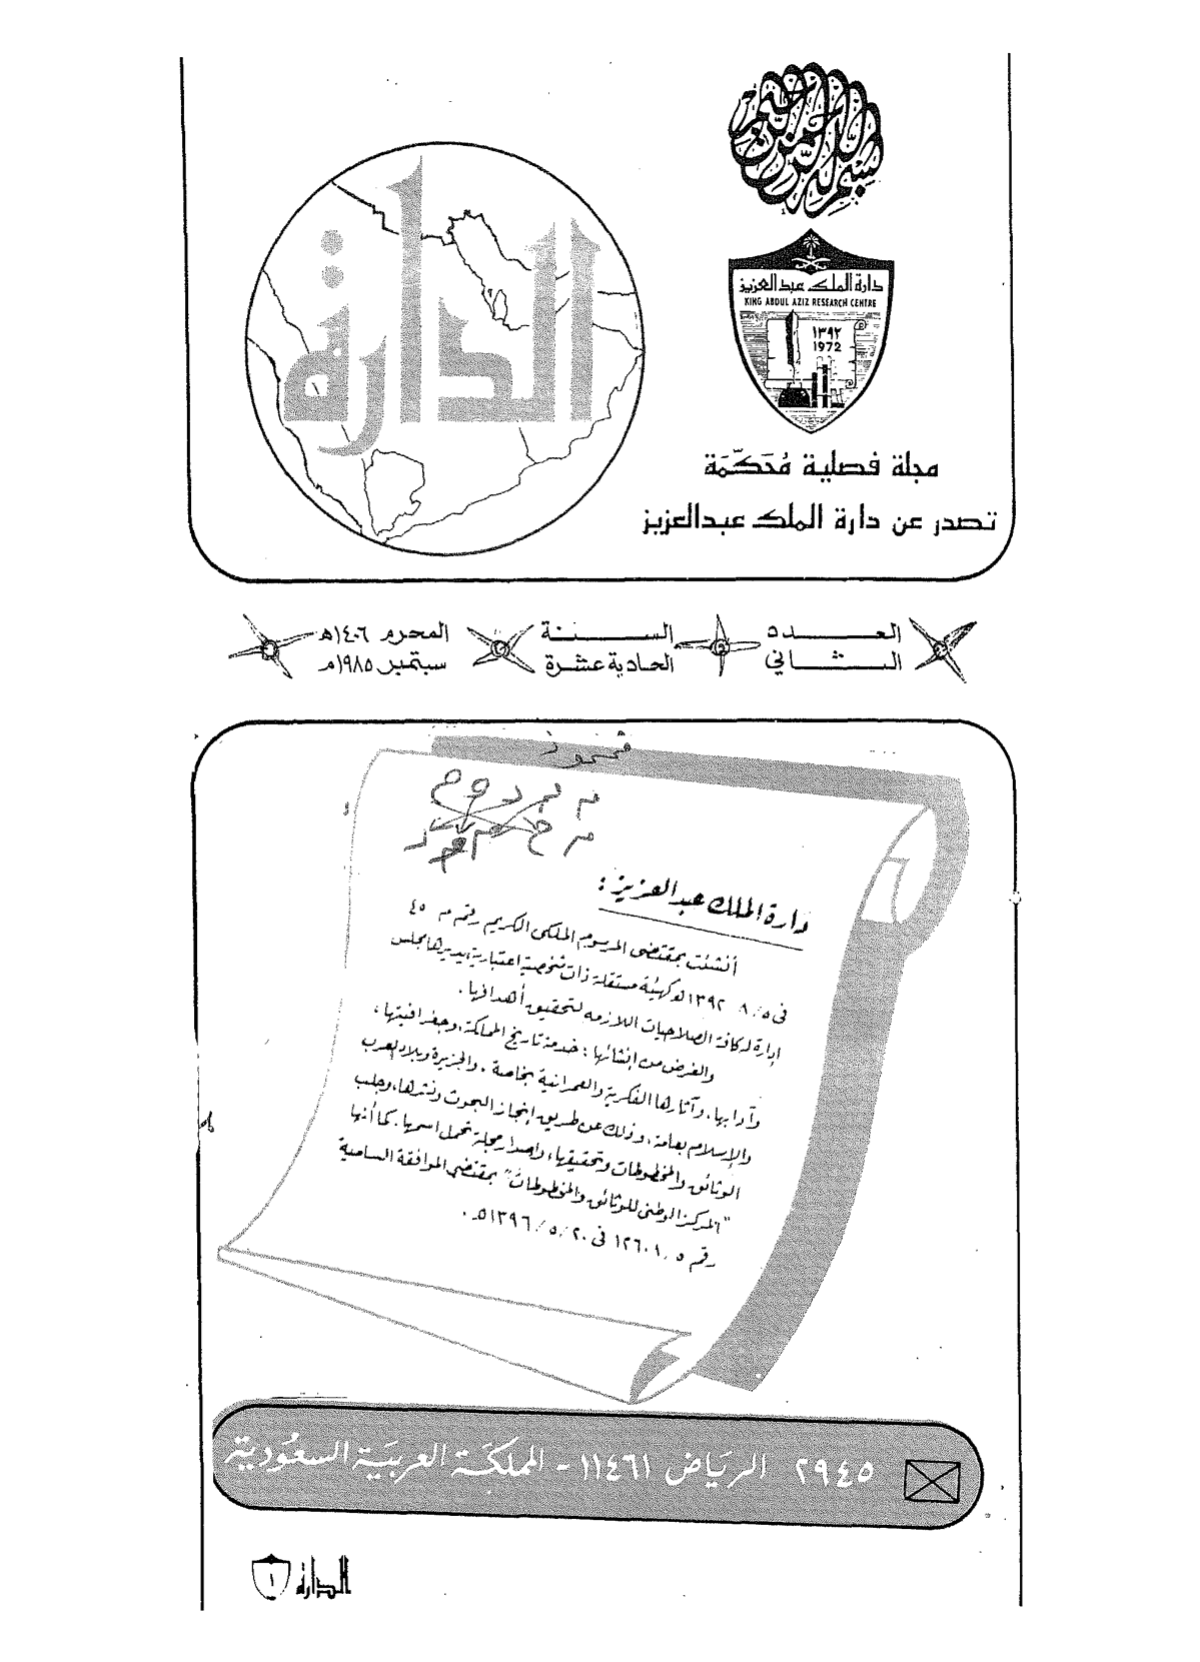 بسم الله الرحمن الرحيم
الدارة
دارة الملك عبدالعزيز
KING ABDUL AZIZ RESEARCH CENTRE
١٣٩٢
1972
مجلة فصلية مُحَكَّمَة
تصدر عن دارة الملك عبدالعزيز
العدد الثاني
السنة الحادية عشرة
المحرم ١٤٠٦ھ
سبتمبر ١٩٨٥م
دارة الملك عبدالعزيز :
أنشئت بمقتضى المرسوم الملكى الكريم رقم م ٤٥
فى ٥/ ٨ ١٣٩٢ھ كهيئة مستقلة ذات شخصية اعتبارية، يديرها مجلس
إدارة له كافة الصلاحيات اللازمة لتحقيق أهدافها .
والغرض من إنشائها : خدمة تاريخ المملكة، وجغرافيتها،
وآدابها، وآثارها الفكرية والعمرانية بخاصة . والجزيرة وبلاد العرب
والإسلام بعامة، وذلك عن طريق إنجاز البحوث ونشرها، وجلب
الوثائق والمخطوطات وتحقيقها، وإصدار مجلة تحمل اسمها . كما أنها
"المركز الوطنى للوثائق والمخطوطات" بمقتضى الموافقة السامية
رقم ٥/ ١٢٦٠١ فى ٢٠/ ٥/ ١٣٩٦ھ .
٢٩٤٥ الرياض ١١٤٦١ - المملكة العربية السعودية
الدارة ١